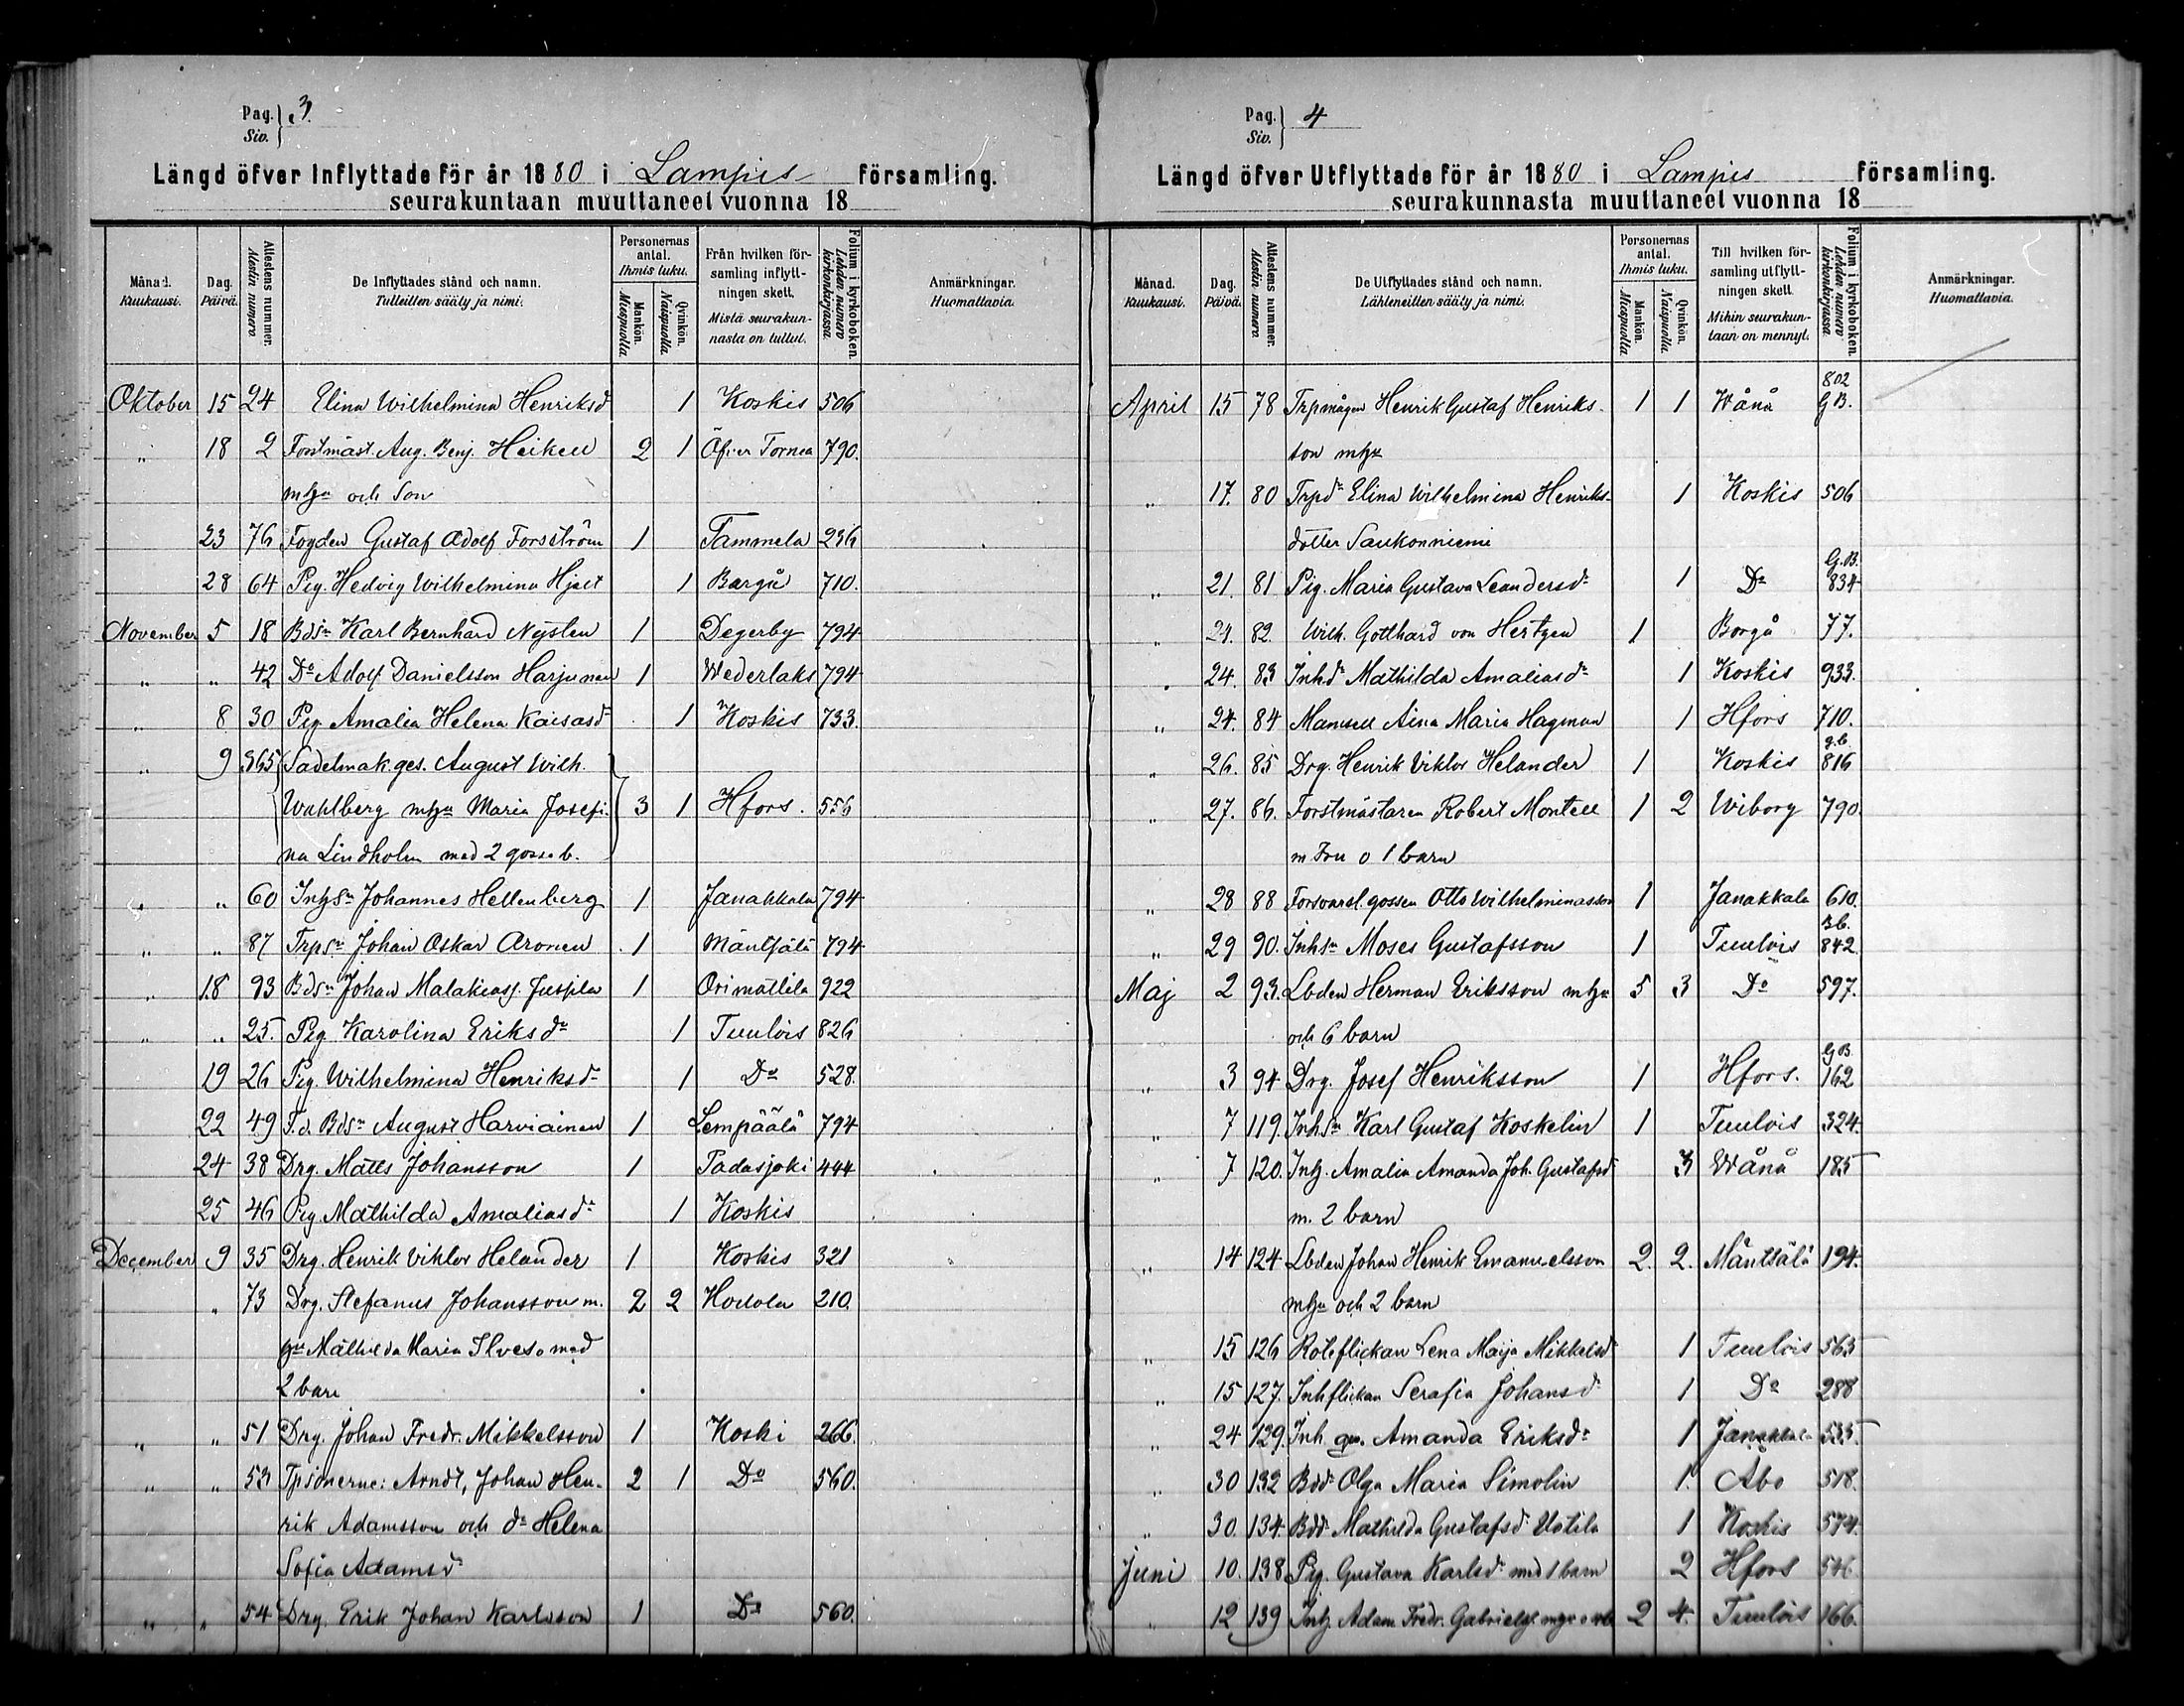 Pag. 3.
Siv.
Längd öfver Inflyttade för år 1880 i Lampis församling.
seurakuntaan muuttaneet vuonna 18
Månad. Kuukausi.
Dag. Päivä.
Attestens nummer. Alestin numero
De Inflyttades stånd och namn.
Tulleitten sääty ja nimi.
Personernas antal. Ihmis luku.
Mankön. Miespuolia
Qvinkön. Naispuolia
Från hvilken för-
samling inflytt-
ningen skett.
Mistä seurakun-
nasta on tullut.
Folium i kyrkoboken. Lehden numero kirkonkirjassa
Anmärkningar.
Huomattavia.
Oktober 15 24 Elina Wilhelmina Henriksd 1 Koskis 506
" 18 2 Forstmäst. Aug. Benj. Heikell 2 1 Öfver Tornea 790.
mhu och Son
23 76 Fogden Gustaf Adolf Forsström 1 Tammela 236
28 64 Pig. Hedvig Wilhelmina Hjelt 1 Borgå 710.
November 5 18 Bdsn Karl Bernhard Nysten 1 Degerby 794
" " 42 Do Adolf Danielsson Harjunen 1 Wederlaks 794
" 8 30 Pig Amalia Helena Kaisasd 1 Koskis 733.
" 9 365 Sadelmak.ges. August Wilh.
Wahlberg mhu Maria Josefi- 3 1 Hfors. 556
na Lindholm med 2 gosseb.
" " 60 Inhsn Johannes Hellenberg 1 Janakkala 794
" " 87 Trpsn Johan Oskar Aronen 1 Mäntsälä 794
" 18 93 Bdsn Johan Malakiass. Juspila 1 Orimattila 922
" " 25. Pig Karolina Eriksdr 1 Tuulois 826
19 26 Pig. Wilhelmina Henriksd 1 Do 528.
22 49 F.d. Bdsn August Harviainen 1 Lempäälä 794
24 38 Drg. Matts Johansson 1 Padasjoki 444
25 46 Pig Mathilda Amaliasdr 1 Koskis
December 9 35 Drg. Henrik Viktor Helander 1 Koskis 321
" 73 Drg. Stefanus Johansson m. 2 2 Hollola 210.
hu Mathilda Maria Ilves o med
2 barn
" " 51 Drg. Johan Fredr. Mikkelsson 1 Koski 266.
" " 53 Tpsönerne: Arndt, Johan Hen- 2 1 Do 560.
rik Adamsson och dr Helena
Sofia Adamsd
" " 54 Drg. Erik Johan Karlsson 1 Do 560.
Pag. 4
Siv.
Längd öfver Utflyttade för år 1880 i Lampis församling.
seurakunnasta muuttaneet vuonna 18
Månad. Kuukausi.
Dag. Päivä.
Attestens nummer. Alestin numero
De Utflyttades stånd och namn.
Lähteneitten sääty ja nimi.
Personernas antal. Ihmis luku.
Mankön. Miespuolia
Qvinkön. Naispuolia
Till hvilken för-
samling utflytt-
ningen skett.
Mihin seurakun-
taan on mennyt.
Folium i kyrkoboken. Lehden numero kirkonkirjassa
Anmärkningar.
Huomattavia.
April 15 78 Trpmågen Henrik Gustaf Henriks- 1 1 Wånå 802 G.B.
son mhu
" 17. 80 Trpdr Elina Wilhelmina Henriks- 1 Koskis 506
dotter Saukonniemi
" 21. 81 Pig. Maria Gustava Leandersdr 1 Do G.B. 834
" 21. 82. Wilh. Gotthard von Hertzen 1 Borgå 77.
" 24. 83 Inhdr Mathilda Amaliasdr 1 Koskis 933.
" 24. 84 Mamsell Aina Maria Hagman 1 Hfors 710.
" 26. 85 Drg. Henrik Viktor Helander 1 Koskis g.b. 816
" 27. 86. Forstmästaren Robert Montell 1 2 Wiborg 790.
m Fru o 1 barn
" 28 88 Forsvarsl. gossen Otto Wilhelminasson 1 Janakkala 610.
" 29 90. Inhsn Moses Gustafsson 1 Tuulois B.b. 842
Maj 2 93. Lbden Herman Eriksson mhu 5 3 Do 597.
och 6 barn
" 3 94 Drg. Josef Henriksson 1 Hfors. G.B. 162
" 7 119. Inhsn Karl Gustaf Koskelin 1 Tuulois 324.
" 7 120. Inh. Amalia Amanda Joh. Gustafsd 3 Wånå 185
m. 2 barn
" 14 124 Lbden Johan Henrik Emanuelsson 2. 2. Mäntsälä 194.
mhu och 2 barn
" 15 126 Roteflickan Lena Maija Mikkelsd 1 Tuulois 563
" 15 127. Inhflickan Serafia Johansd 1 Do 288
" 24 129. Inh qn. Amanda Eriksdr 1 Janakkala 535.
" 30 132 Bddr Olga Maria Simolin 1. Åbo 518.
" 30. 134. Bddr Mathilda Gustafsd. Uotila 1 Koskis 574.
Juni 10. 138 Pig. Gustava Karlsdr med 1 barn 2 Hfors 546
" 12 139 Inh. Adam Fredr. Gabrielss. 2 4. Tuulois 166.